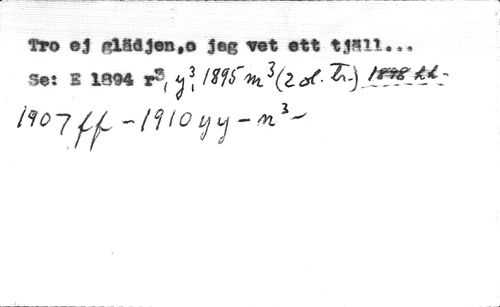 Tro ej glädjen,o jag vet ett tjäll...
Se: E 1894 r³, y³, 1895 m³ (2 ol. Tr.) 1898 kk -
1907 ff - 1910 yy - n³ -